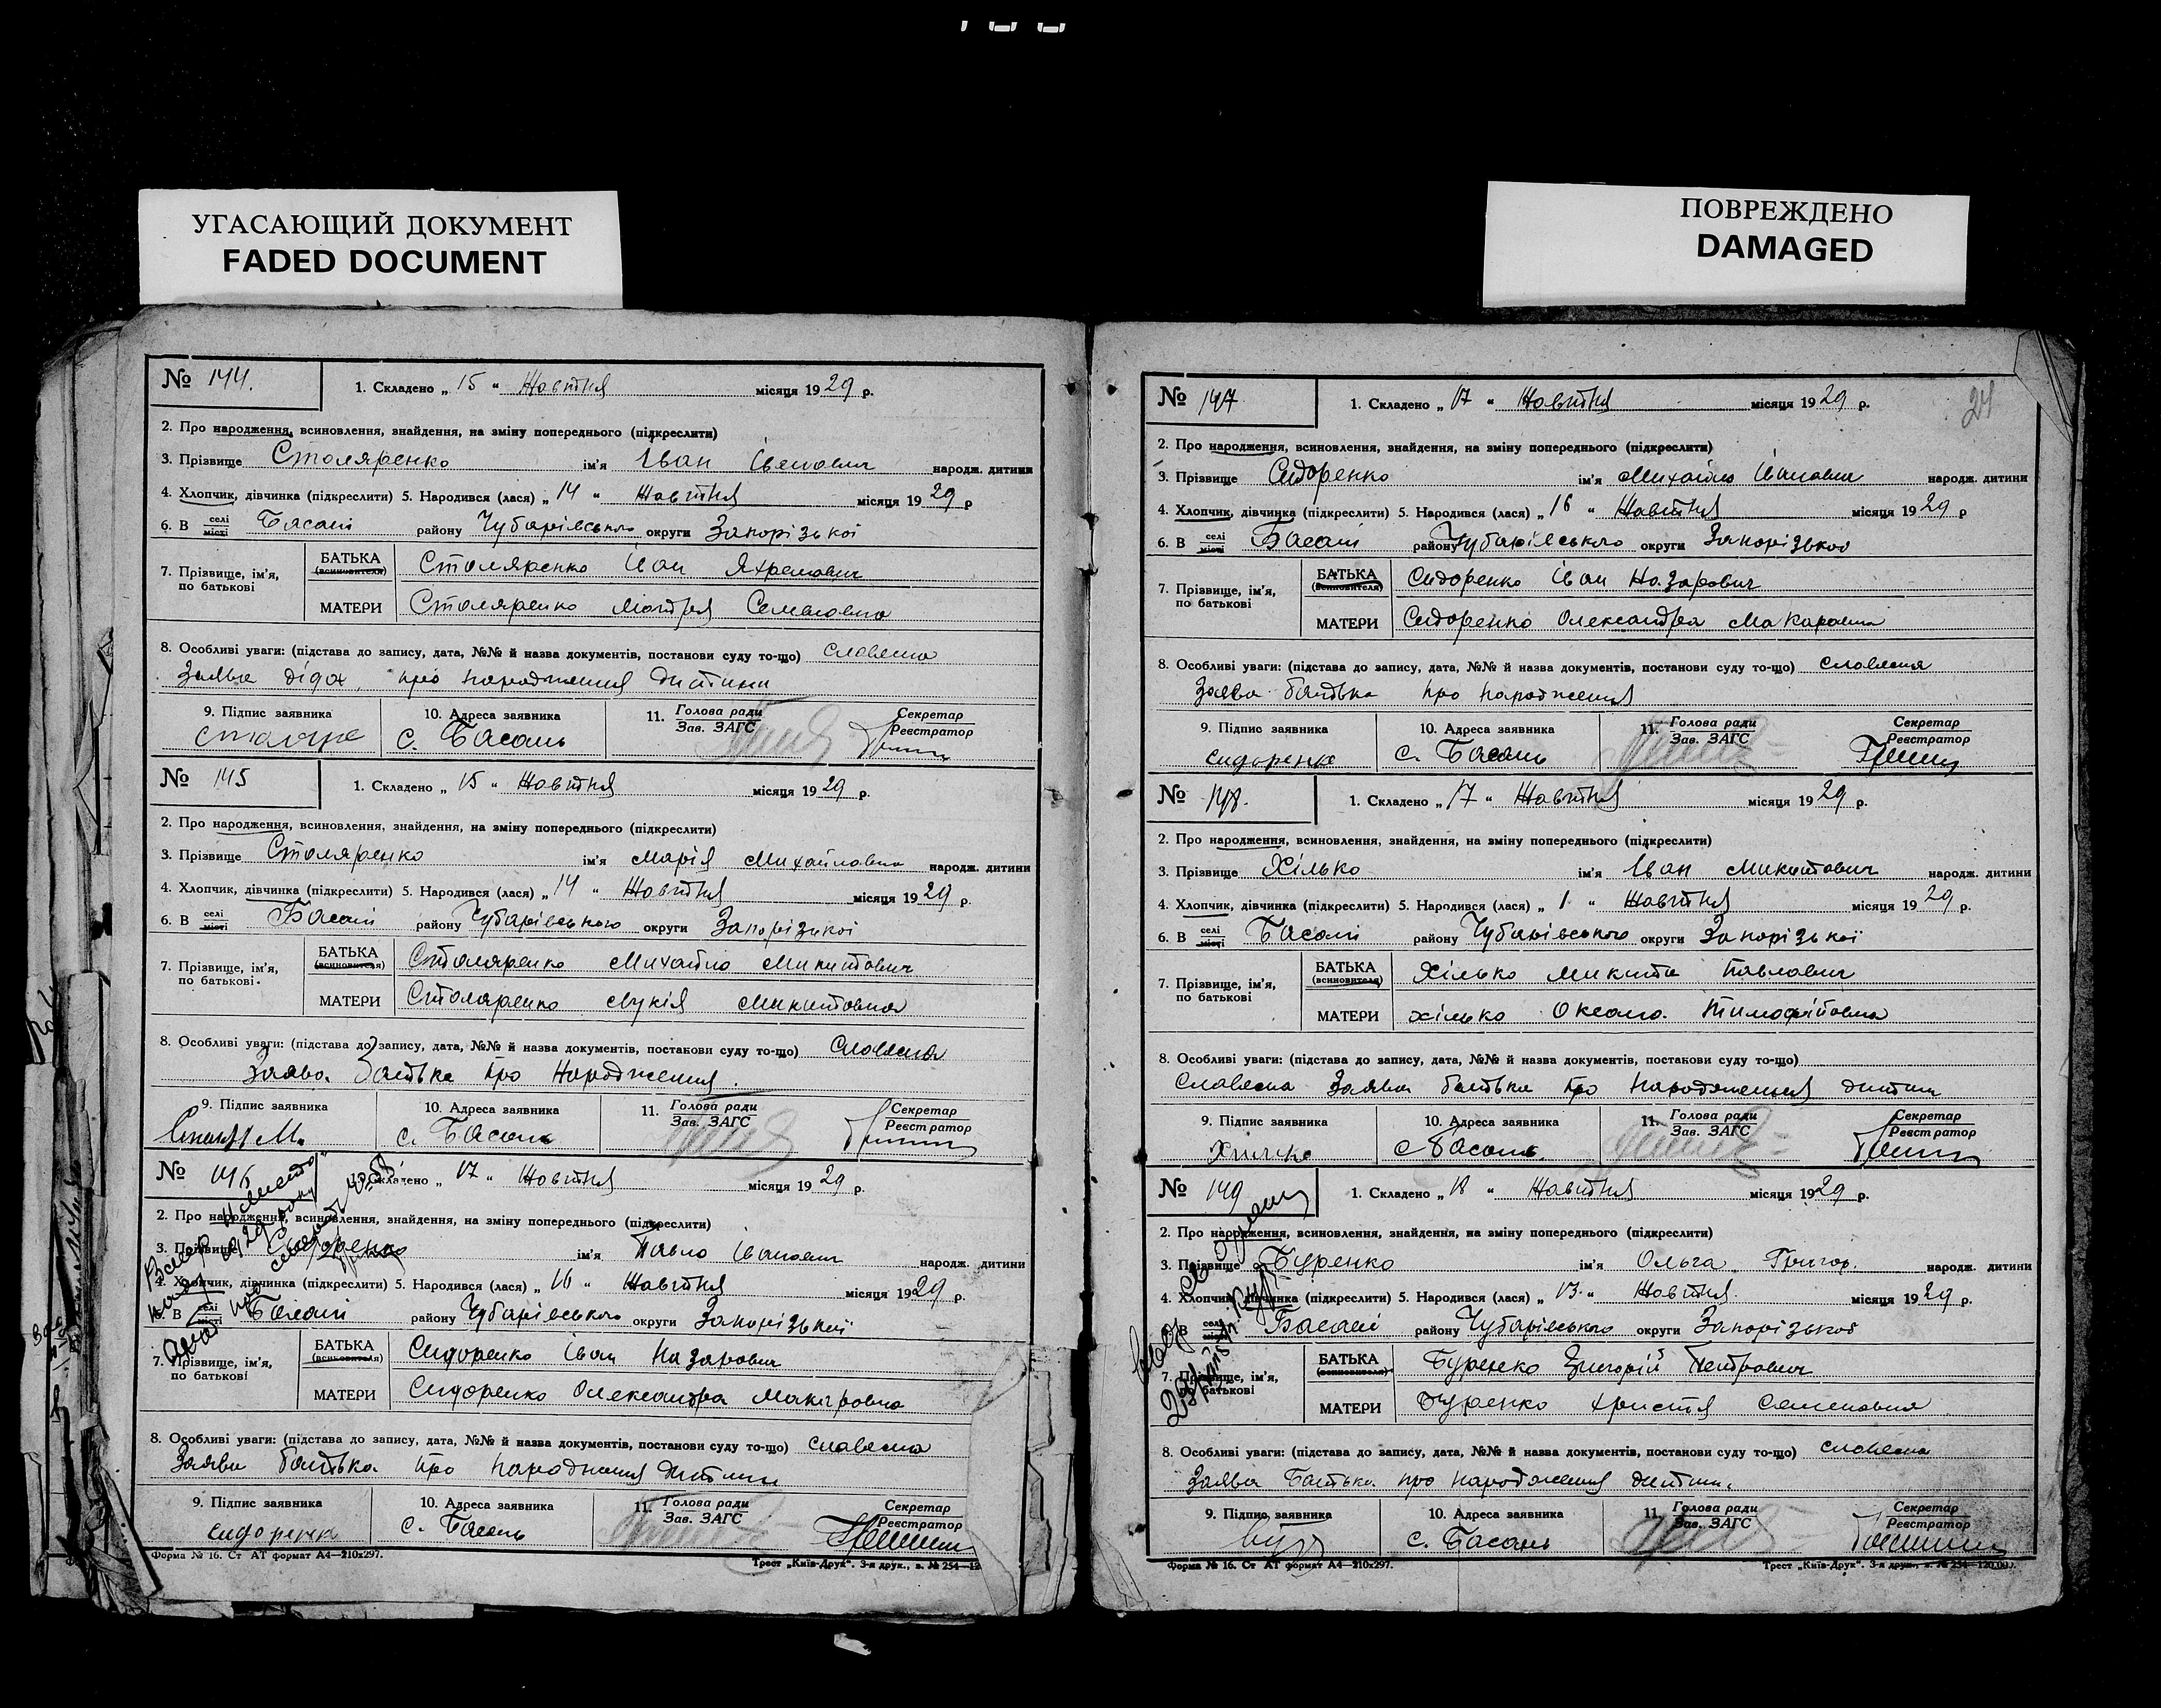 УГАСАЮЩИЙ ДОКУМЕНТ
FADED DOCUMENT
ПОВРЕЖДЕНО
DAMAGED
№ 144. 1. Складено „ 15 " Жовтня місяця 1929 р.
2. Про народження, всиновлення, знайдення, на зміну попереднього (підкреслити)
3. Прізвище Столяренко ім'я Іван Іванович народж. дитини
4. Хлопчик, дівчинка (підкреслити) 5. Народився (лася) „ 14 " Жовтня місяця 1929 р
6. В селі місті Басані району Чубарівського округи Запорізької
7. Прізвище, ім'я, по батькові
БАТЬКА (всиновителя) Столяренко Іван
МАТЕРИ Столяренко Семеновна
8. Особливі уваги: (підстава до запису, дата, №№ й назва документів, постанови суду то-що) Словесна
Заява діда, про народження дитини
9. Підпис заявника 10. Адреса заявника 11. Голова ради Зав. ЗАГС Секретар Реєстратор
с. Басань
№ 145 1. Складено „ 15 " Жовтня місяця 1929 р.
2. Про народження, всиновлення, знайдення, на зміну попереднього (підкреслити)
3. Прізвище Столяренко ім'я Марія Михайловна народж. дитини
4. Хлопчик, дівчинка (підкреслити) 5. Народився (лася) „ 14 " Жовтня місяця 1929 р.
6. В селі місті Басані району Чубарівського округи Запорізької
7. Прізвище, ім'я, по батькові.
БАТЬКА (всиновителя) Столяренко Михайло Микитович
МАТЕРИ Столяренко Лукія Микитовна
8. Особливі уваги: (підстава до запису, дата, №№ й назва документів, постанови суду то-що) Словесна
Заява Батька про Народження.
9. Підпис заявника 10. Адреса заявника 11. Голова ради Зав. ЗАГС Секретар Реєстратор
с. Басань
№ 146 Складено „ 17 " Жовтня місяця 1929 р.
2. Про народження, всиновлення, знайдення, на зміну попереднього (підкреслити)
3. Прізвище Сидоренко ім'я Павло Іванович народж. дитини
4. Хлопчик, дівчинка (підкреслити) 5. Народився (лася) „ 16 " Жовтня місяця 1929 р.
6. В селі місті Басані району Чубарівського округи Запорізької
7. Прізвище, ім'я, по батькові
БАТЬКА (всиновителя) Сидоренко Іван Назарович
МАТЕРИ Сидоренко Олександра Макаровна
8. Особливі уваги: (підстава до запису, дата, №№ й назва документів, постанови суду то-що) Словесна
Заява батька про народження дитини
9. Підпис заявника 10. Адреса заявника 11. Голова ради Зав. ЗАГС Секретар Реєстратор
сидоренко с. Басань
Форма № 16. Ст АТ формат А4—210х297. Трест „Київ-Друк". 3-я друк., з. № 254—12
24
№ 147 1. Складено „ 17 " Жовтня місяця 1929 р.
2. Про народження, всиновлення, знайдення, на зміну попереднього (підкреслити)
3. Прізвище Сидоренко ім'я Михайло Іванович народж. дитини
4. Хлопчик, дівчинка (підкреслити) 5. Народився (лася) „ 16 " Жовтня місяця 1929 р
6. В селі місті Басані району Чубарівського округи Запорізької
7. Прізвище, ім'я, по батькові
БАТЬКА (всиновителя) Сидоренко Іван Назарович
МАТЕРИ Сидоренко Олександра Макаровна
8. Особливі уваги: (підстава до запису, дата, №№ й назва документів, постанови суду то-що) Словесна
Заява батька про народження
9. Підпис заявника 10. Адреса заявника 11. Голова ради Зав. ЗАГС Секретар Реєстратор
сидоренко с. Басань
№ 148. 1. Складено „ 17 " Жовтня місяця 1929 р.
2. Про народження, всиновлення, знайдення, на зміну попереднього (підкреслити)
3. Прізвище Хілько ім'я Іван Микитович народж. дитини
4. Хлопчик, дівчинка (підкреслити) 5. Народився (лася) „ 1 " Жовтня місяця 1929 р.
6. В селі місті Басані району Чубарівського округи Запорізької
7. Прізвище, ім'я, по батькові
БАТЬКА (всиновителя) Хілько Микита Павлович
МАТЕРИ хілько Оксана Тимофійовна
8. Особливі уваги: (підстава до запису, дата, №№ й назва документів, постанови суду то-що)
Словесна Заява батька про народження дитини
9. Підпис заявника 10. Адреса заявника 11. Голова ради Зав. ЗАГС Секретар Реєстратор
с Басань
№ 149 1. Складено „ 18 " Жовтня місяця 1929 р.
2. Про народження, всиновлення, знайдення, на зміну попереднього (підкреслити)
3. Прізвище Буренко ім'я Ольга Григор. народж. дитини
4. Хлопчик, дівчинка (підкреслити) 5. Народився (лася) „ 13 " Жовтня місяця 1929 р.
В селі місті Басані району Чубарівського округи Запорізької
7. Прізвище, ім'я, по батькові
БАТЬКА (всиновителя) Буренко Григорій Петрович
МАТЕРИ Буренко Христя Семеновна
8. Особливі уваги: (підстава до запису, дата, №№ й назва документів, постанови суду то-що) Словесна
Заява Батька про народження дитини
9. Підпис заявника 10. Адреса заявника 11. Голова ради Зав. ЗАГС Секретар Реєстратор
с. Басань
Форма № 16. Ст АТ формат А4—210х297. Трест „Київ-Друк". 3-я друк., з. № 254—120.000.